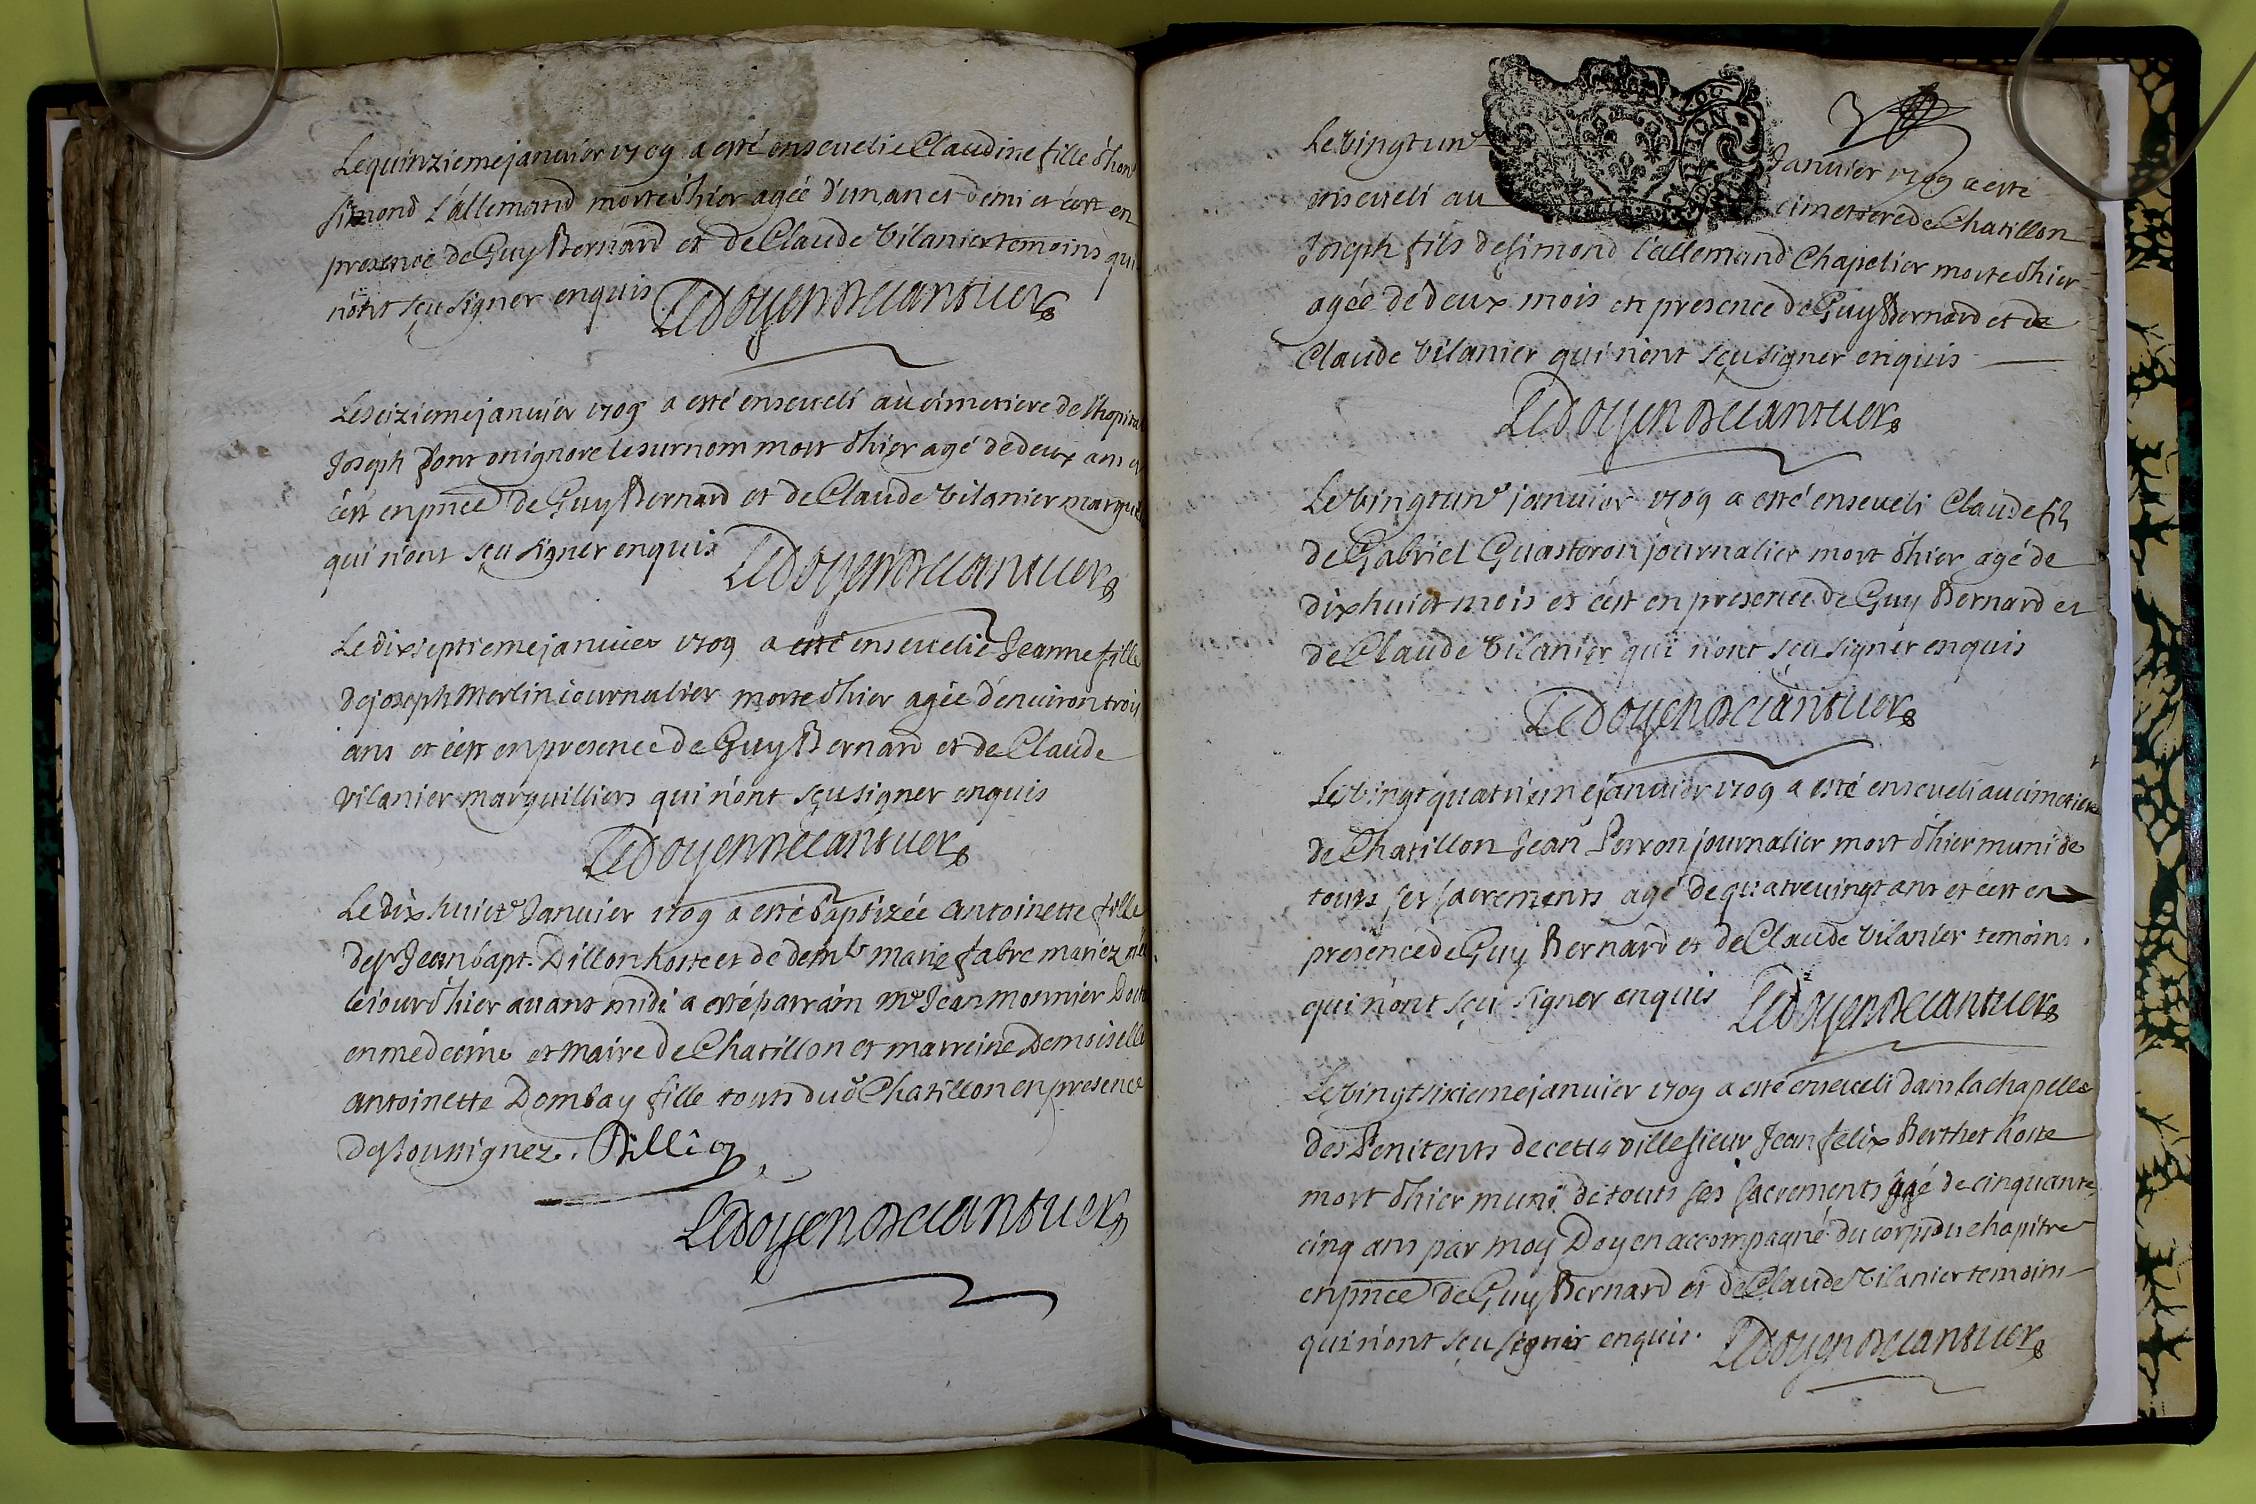 Le quinzieme janvier 1709 a esté ensevelie Claudine fille d'hon.
simond L'allemand morte d'hier agée d'un an et demi et c'est en
presence de Guy Bernard et de Claude Vilanier temoins qui
n'ont sçu signer enquis Ledoyen
Le seizieme janvier 1709 a esté enseveli au cimetiere de l'hopital
Joseph dont on ignore le surnom mort d'hier agé de deux ans et
c'est en pnce de Guy Bernard et de Claude Vilanier
qui n'ont sçu signer enquis Ledoyen
Le dixseptieme janvier 1709 a esté ensevelie Jeanne fille
de joseph Merlin journalier morte d'hier agée d'environ trois
ans et c'est en presence de Guy Bernard et de Claude
vilanier marguilliers qui n'ont sçu signer enquis
Ledoyen
Le dix huict.e Janvier 1709 a esté baptizée antoinette fille
de sr Jean bapt. Dillon hoste et de dem.le marie fabre mariez née
le jour d'hier avant midi a esté parrain Mr Jean monnier
en medecine et Maire de Chatillon et marreine Demoiselle
antoinette Dombay fille touts dud Chatillon en presence
des sousignez. Dillion
Ledoyen
Le vingt un.e Janvier 1709 a esté
enseveli au cimetiere de Chatillon
Joseph fils de simond l'allemand Chapelier morte d'hier
agée de deux mois en presence de Guy Bernard et de
Claude vilanier qui n'ont sçu signer enquis
Ledoyen
Le vingt un.e janvier 1709 a esté enseveli Claude fils
de Gabriel Guasteron journalier mort d'hier agé de
dixhuict mois et c'est en presence de Guy Bernard et
de Claude Vilanier qui n'ont sçu signer enquis
Ledoyen
Le vingt quatrieme janvier 1709 a esté enseveli au cimetiere
de Chatillon Jean Perron journalier mort d'hier muni de
touts ses sacrements agé de quatrevingt ans et c'est en
presence de Guy Bernard et de Claude Vilanier temoins
qui n'ont sçu signer enquis Ledoyen
Le vingt sixieme janvier 1709 a esté enseveli dans la chapelle
des Penitents de cette ville sieur Jean felix Berthet hoste
mort d'hier muni de touts ses sacrements agé de cinquante
cinq ans par moy Doyen accompagné du corps du chapitre
en pnce de Guy Bernard et de Claude Vilanier temoins
qui n'ont sçu signer enquis. Ledoyen